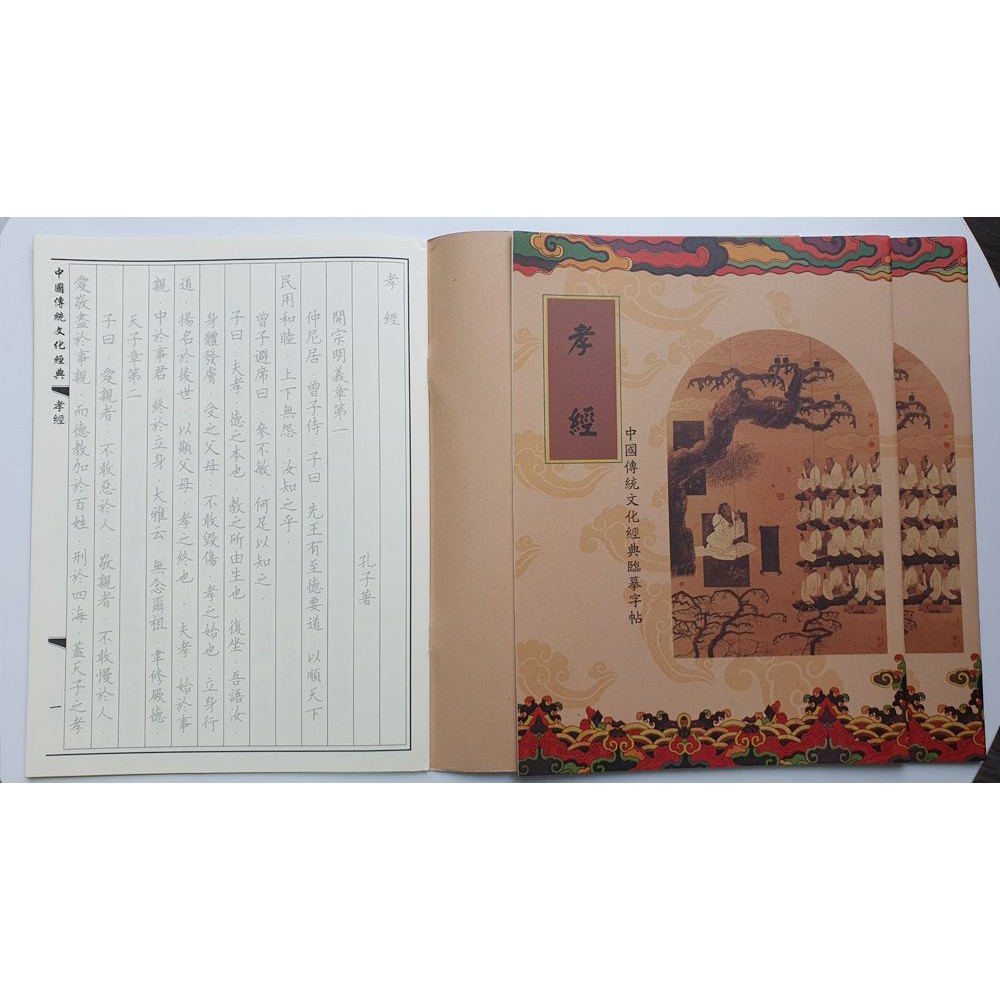 孝經
孔子著
開宗明義章第一
仲尼居．曾子侍．子曰．先王有至德要道．以順天下
民用和睦．上下無怨．汝知之乎．
曾子避席曰．參不敏．何足以知之．
子曰．夫孝．德之本也．教之所由生也．復坐．吾語汝
身體髮膚．受之父母．不敢毀傷．孝之始也．立身行
道．揚名於後世．以顯父母．孝之終也．夫孝．始於事
親．中於事君．終於立身．大雅云．無念爾祖．聿修厥德．
天子章第二
子曰．愛親者．不敢惡於人．敬親者．不敢慢於人．
愛敬盡於事親．而德教加於百姓．刑於四海．蓋天子之孝
中國傳統文化經典
孝經
一
孝經
中國傳統文化經典臨摹字帖